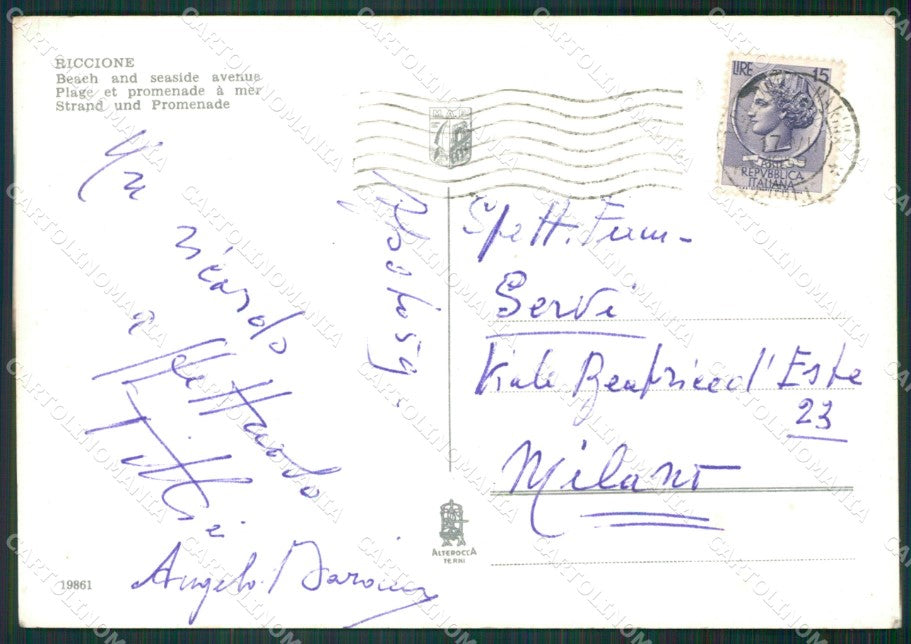 RICCIONE
Beach and seaside avenue
Plage et promenade à mer
Strand und Promenade
Un
ricordo
a
Tutti
Angelo
19861
LIRE 15
POSTE
REPVBBLICA
ITALIANA
Spett. Fam-
Servi
Viale Beatrice d'Este
23
Milano
ALTEROCCA
TERNI
CARTOLINOMANIA